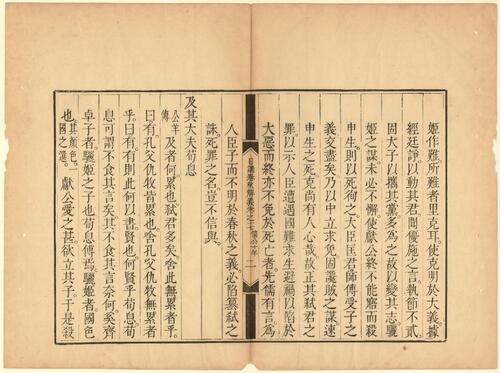 姬作難所難者里克耳使克明於大義據
經廷諍以動其君聞優施之言執節不貳
固大子以攜其黨多爲之故以變其志驪
姬之謀未必不懈使獻公終不能寤而殺
申生則以死徇之大臣匡君師傅受子之
義交盡矣乃以中立求免固讒賊之謀速
申生之死克尚有人心哉故正其弒君之
罪以示人臣遭遇國難求生避禍以陷於
大惡而終亦不免於死亡者先儒有言爲
日講春秋解義卷之七 僖公十年 二
人臣子而不明於春秋之義必陷篡弒之
誅死罪之名豈不信與
及其大夫荀息
公羊傳及者何累也弒君多矣舍此無累者乎
曰有孔父仇牧皆累也舍孔父仇牧無累者
乎曰有有則此何以書賢也何賢乎荀息荀
息可謂不食其言矣其不食其言奈何奚齊
卓子者驪姬之子也荀息傅焉驪姬者國色
也其顏色一國之選獻公愛之甚欲立其子于是殺